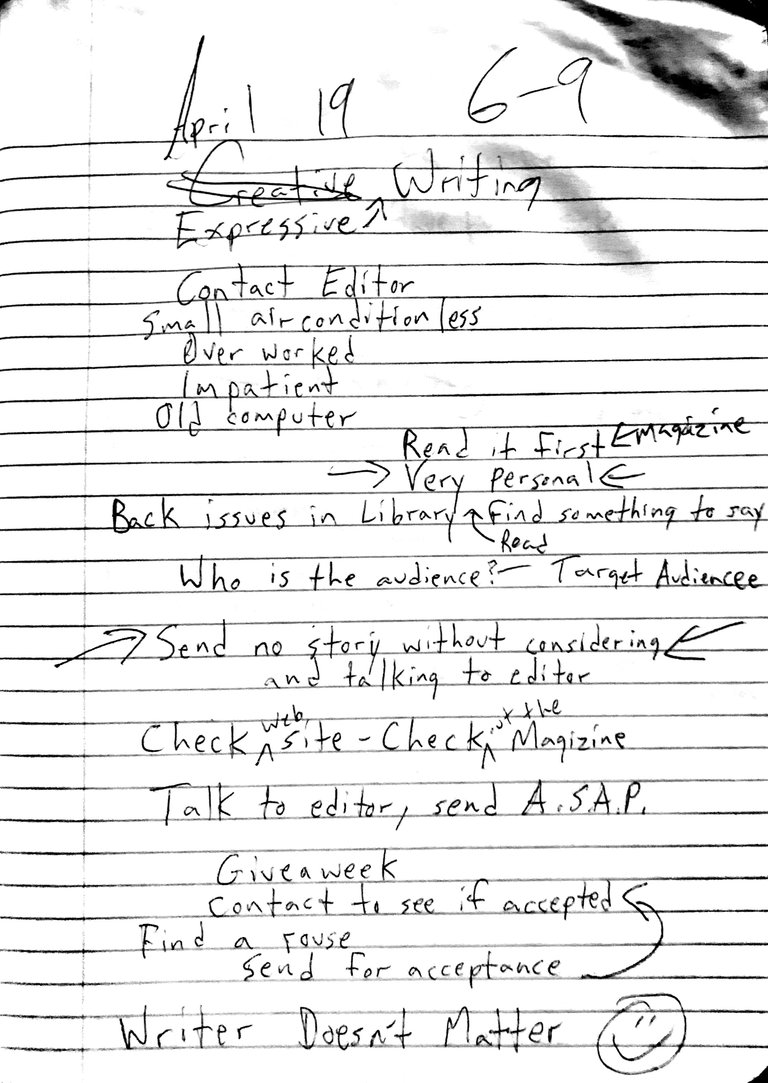 April 19 6-9
Creative Writing
Expressive
Contact Editor
Small airconditionless
Over worked
Impatient
Old computer
Read it first Magazine
Very personal
Back issues in Library Find something to say
Read
Who is the audience? - Target Audiencee
Send no story without considering
and talking to editor
web out the
Check site - Check Magizine
Talk to editor, send A.S.A.P.
Giveaweek
Contact to see if accepted
Find a rouse
Send for acceptance
Writer Doesn't Matter